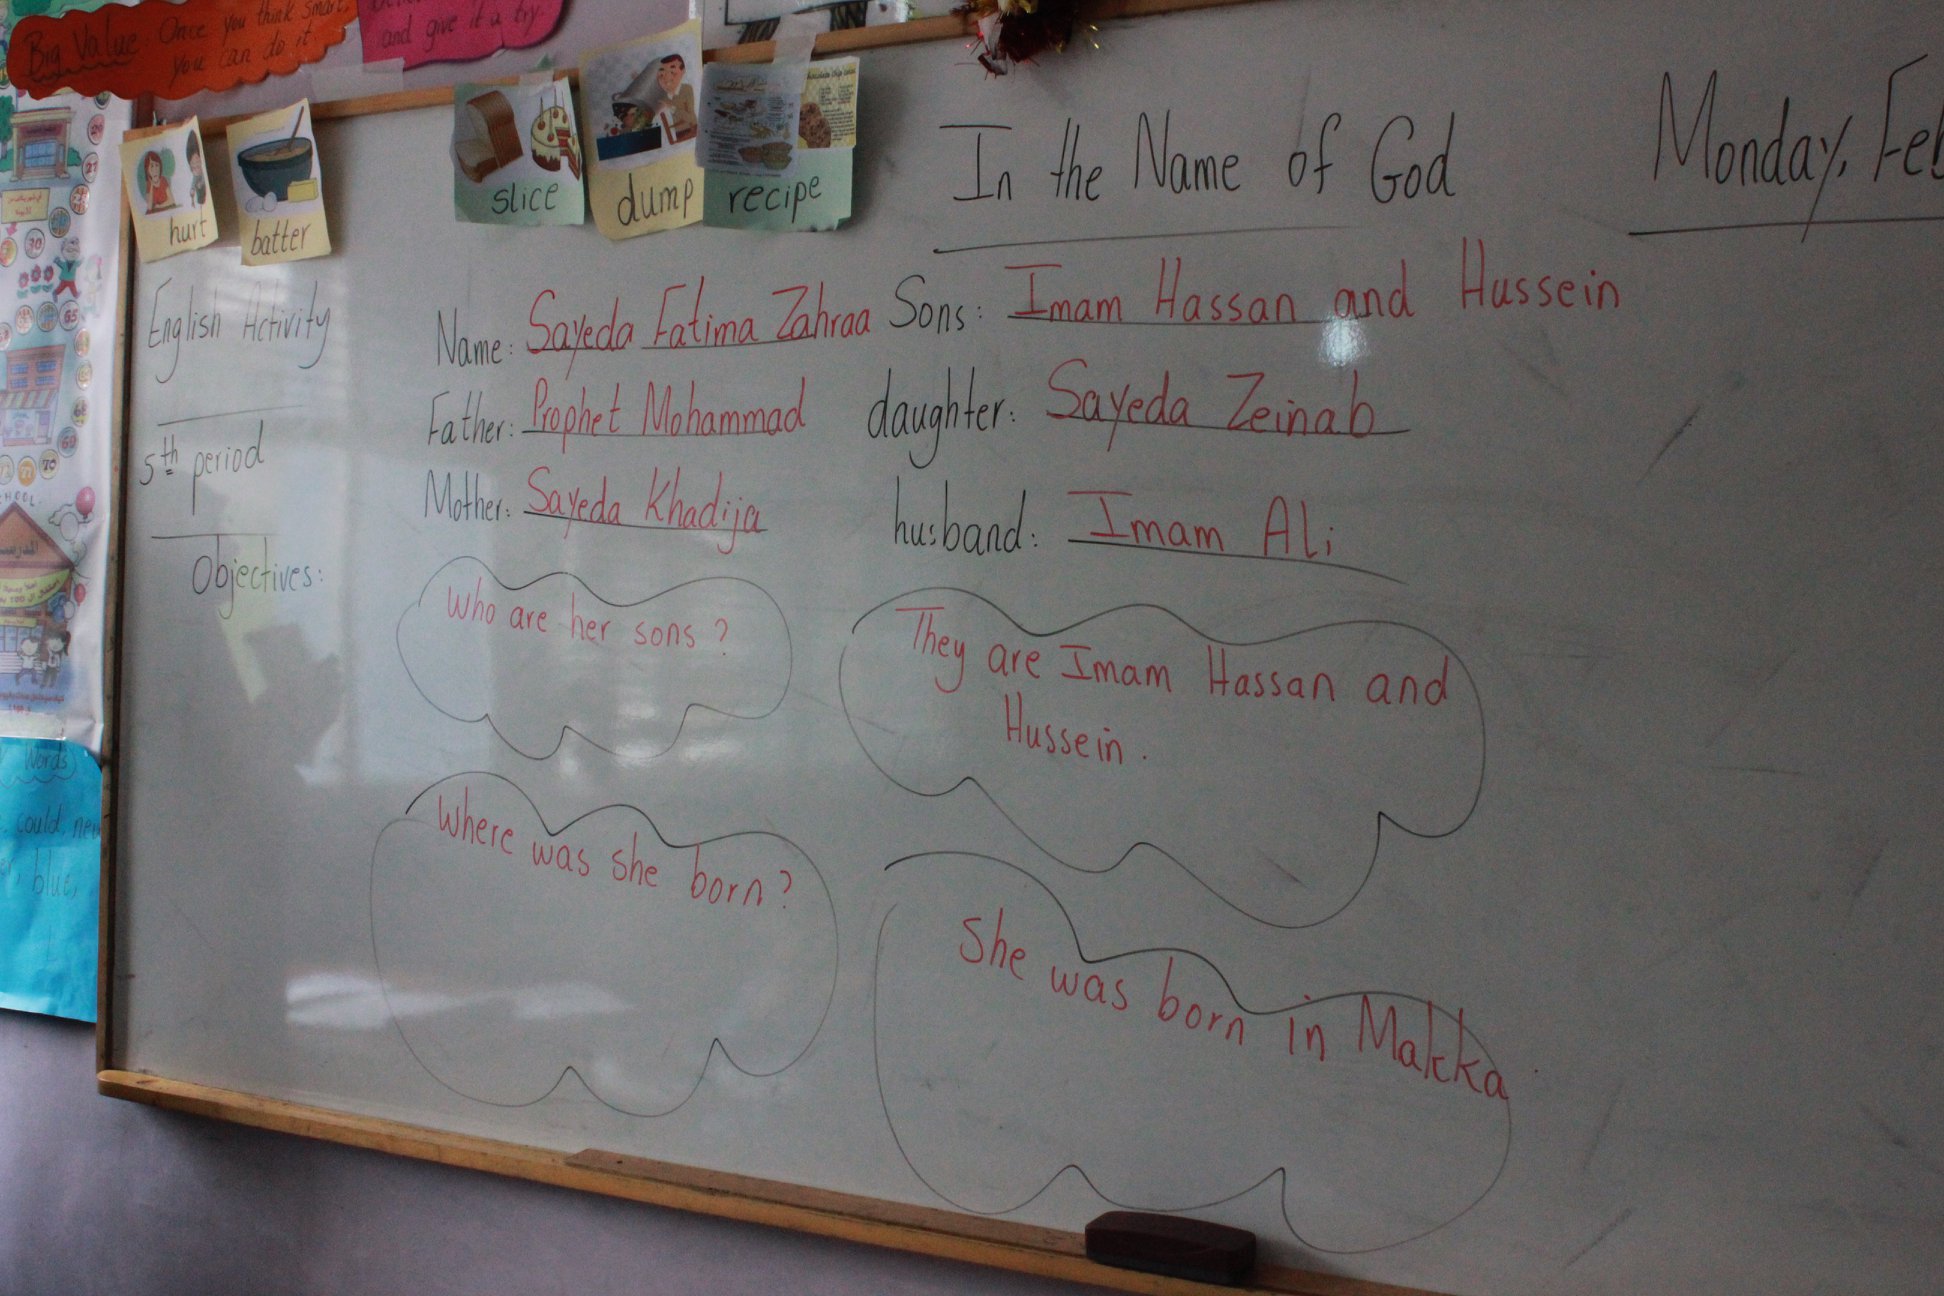 Big Value: Once you think smart,
you can do it
and give it a try.
hurt
batter
slice
dump
recipe
In the Name of God
Monday, Feb
English Activity
5th period
Objectives:
Name: Sayeda Fatima Zahraa
Father: Prophet Mohammad
Mother: Sayeda Khadija
Sons: Imam Hassan and Hussein
daughter: Sayeda Zeinab
husband: Imam Ali
Who are her sons?
They are Imam Hassan and
Hussein.
Where was she born?
She was born in Makka
Words
could,
blue,